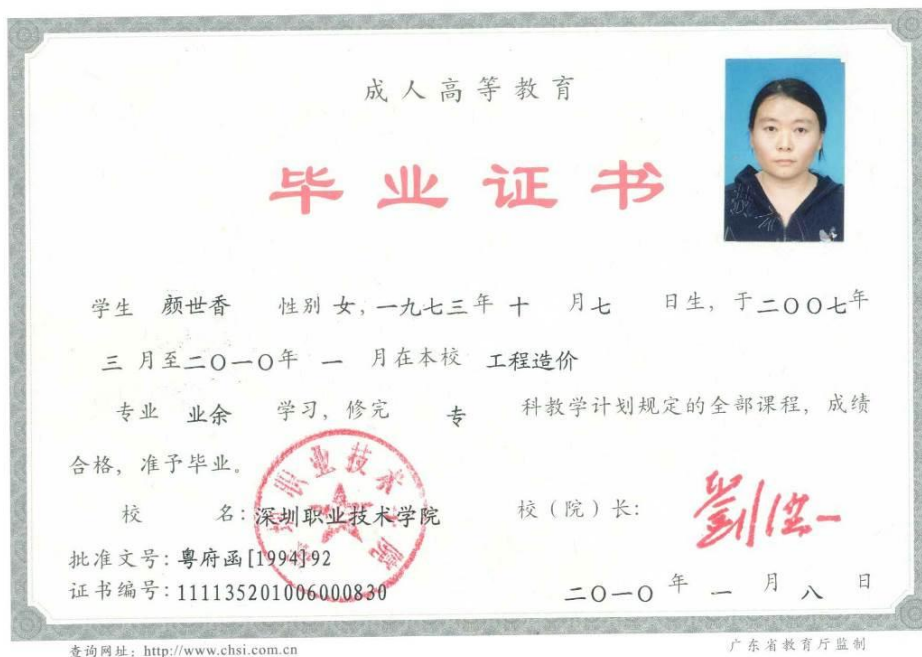 成人高等教育
毕业证书
学生 颜世香 性别 女，一九七三年 十 月七 日生，于二〇〇七年
三 月至二〇一〇年 一 月在本校 工程造价
专业 业余 学习，修完 专 科教学计划规定的全部课程，成绩
合格，准予毕业。
校 名：深圳职业技术学院 校（院）长：
批准文号：粤府函[1994]92
证书编号：111135201006000830
二〇一〇 年 一 月 八 日
深圳职业技术学院
查询网址：http://www.chsi.com.cn 广东省教育厅监制